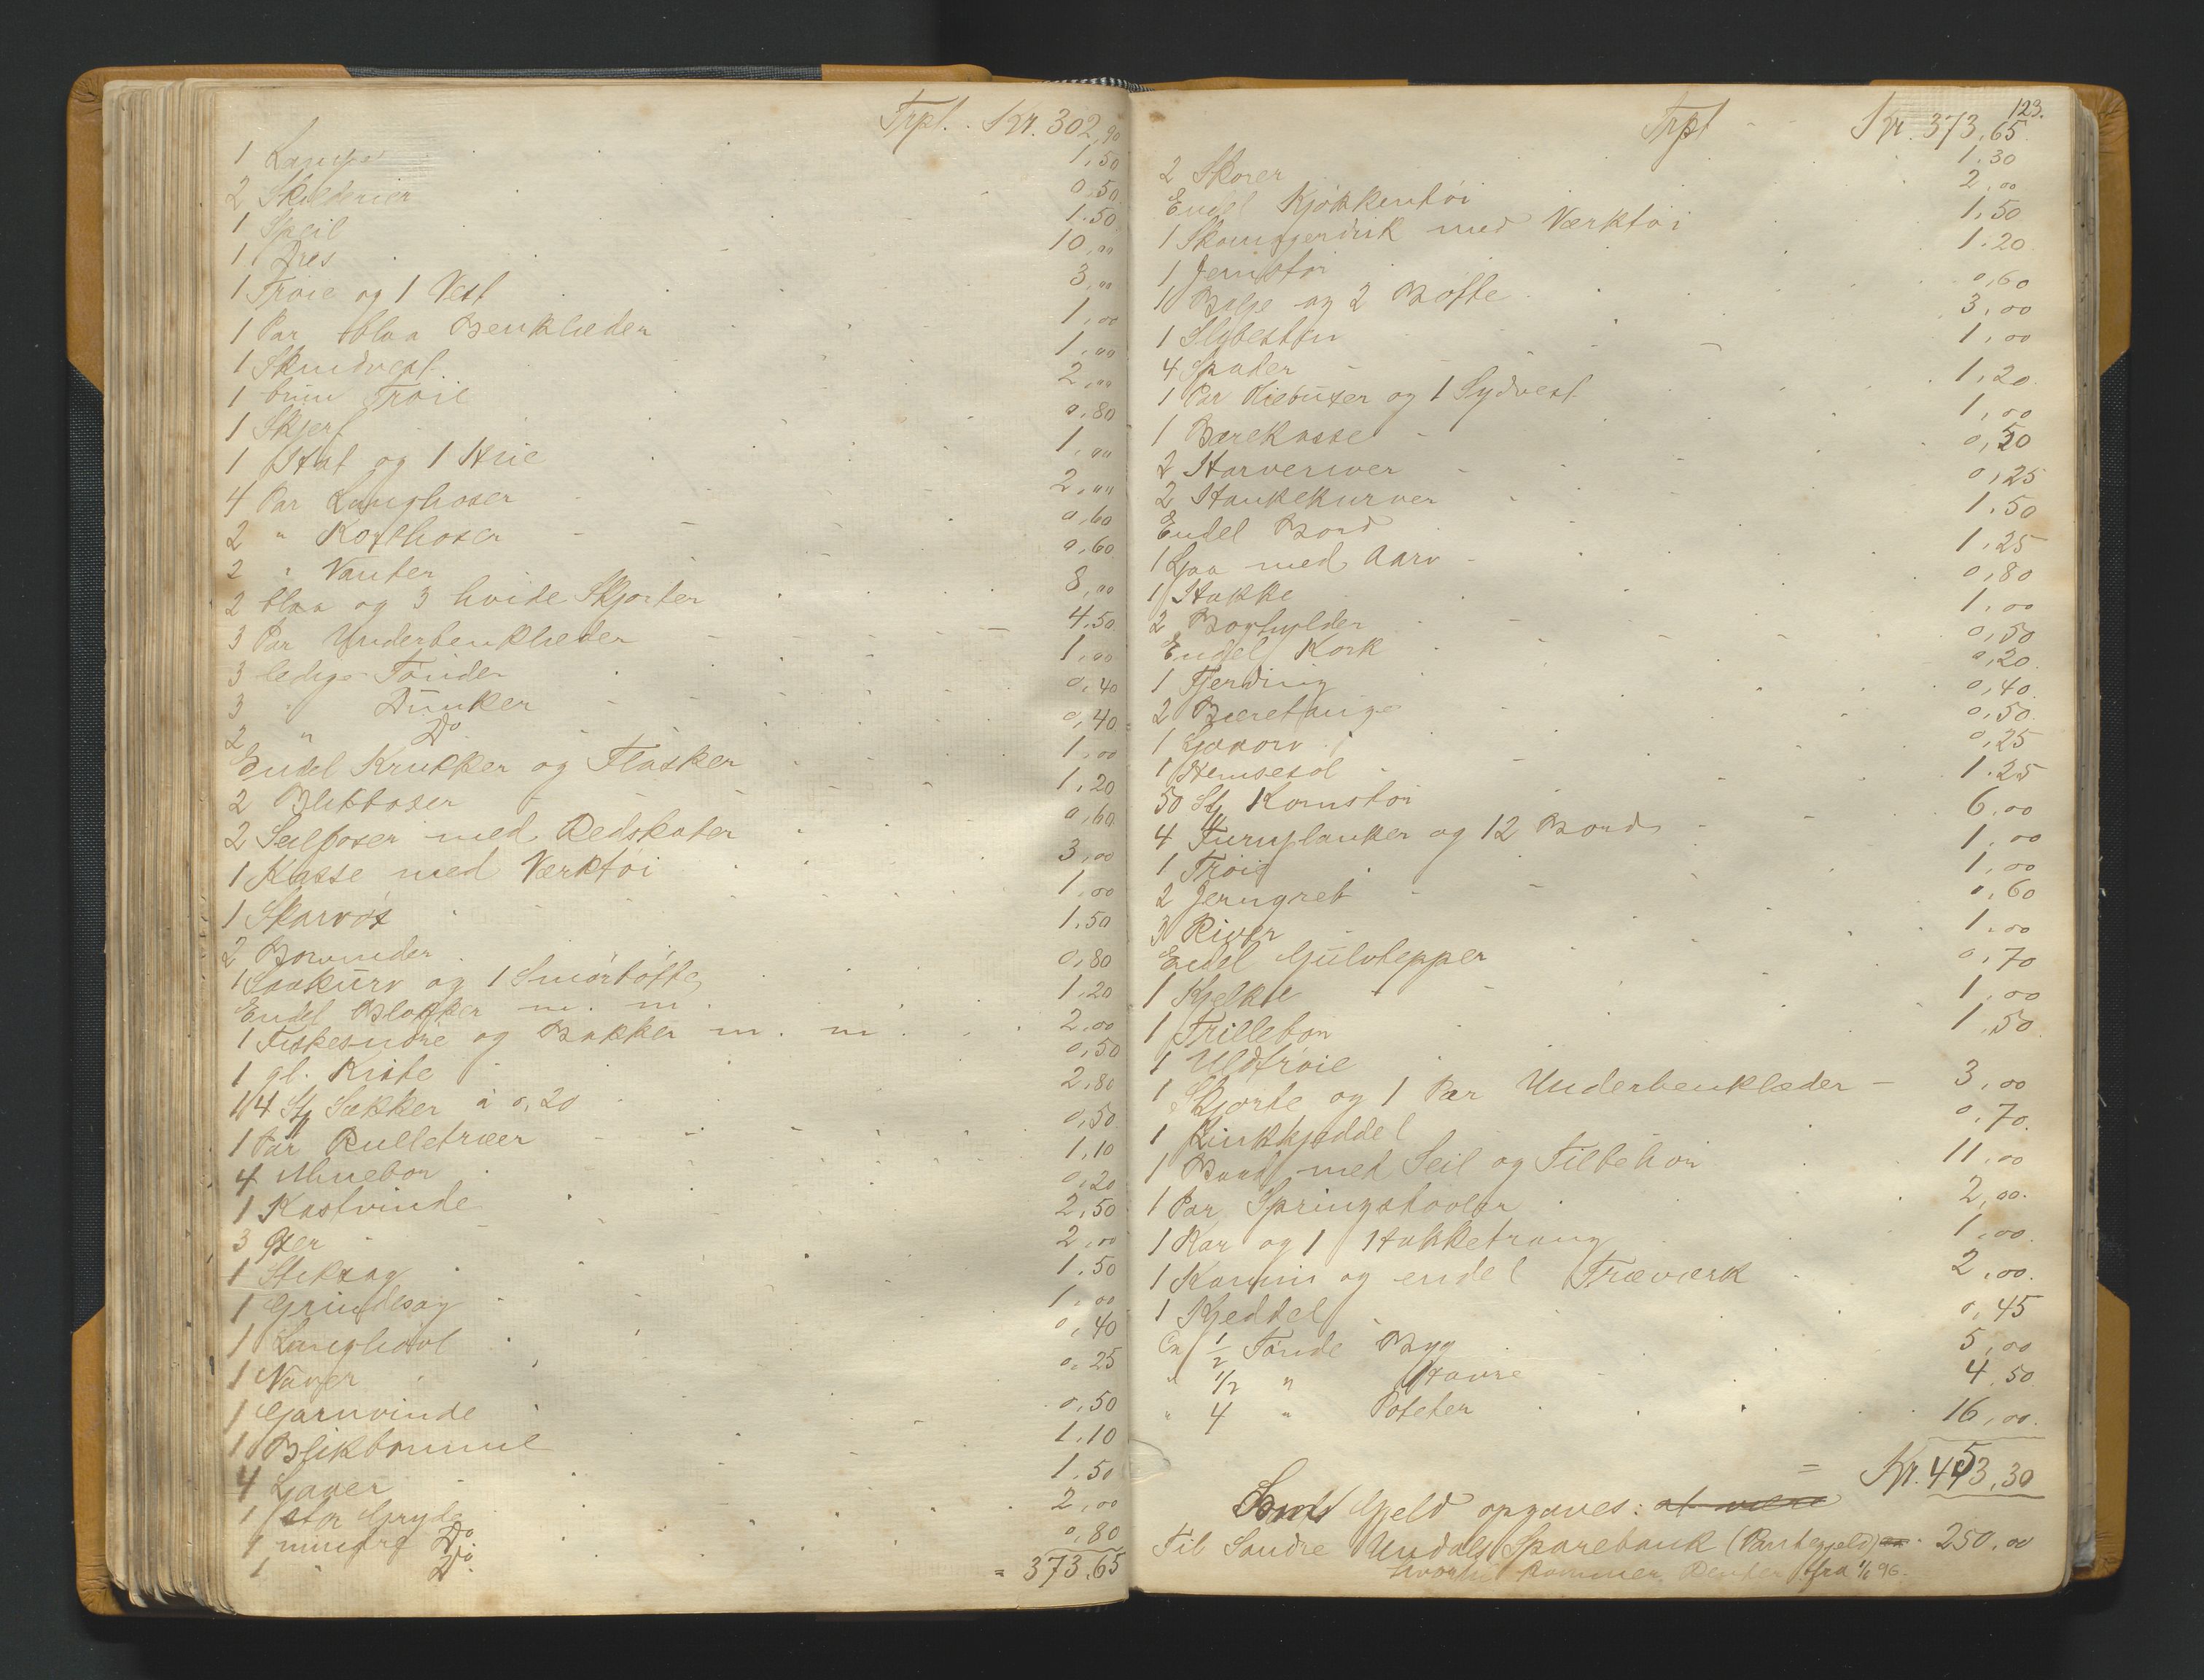 Trpt. Kr. 302,90
1 Lampe 1,50
2 Skilderier 0,50
1 Speil 1.50
1 Dres 10,00
1 Trøie og 1 Vest 3,00
1 Par blaa Benklæder 1,00
1 Skindvest 1,00
1 brun Trøie 2,00
1 Skjerf 0,80
1 Hat og 1 Hue 1,00
4 Par Langhoser 2,00
2 " Korthoser 0,60
2 " Vanter 0,60
2 blaa og 3 hvide Skjorter 8,00
3 Par Underbenklæder 4.50
3 ledige Tønder 1,00
3 " Dunker 0,40
2 " Do 0,40
Endel Krukker og Flasker 1,00
2 Blikboxer 1,20
2 Seilposer med Redskaber 0,60
1 Kasse med Værktøi 3,00
1 Skarvøx 1,00
2 1.50
1 Saakurv og 1 Smørbøtte 0,80
Endel Blokker m. m. 1.20
1 Fiskesnøre og Bakker m. m. 2,00
1 gl. Kiste 0,50
14 St Sækker à 0,20 2,80
1 Par Rulletræer 0,50
4 Minebor 1,10
1 Kastvinde 0,20
3 Øxer 2,50
1 Stiksag 2,00
1 Grindsag 1.50
1 Langhøvl 1,00
1 Naver 0,40
0,25
1 Garnvinde 0,50
1 Blikbomme 1.10
4 Ljaaer 1.50
1 stor Gryde 2,00
1 mindre Do 0,80
1 " Do.
= 373.65
123.
Trpt Kr. 373,65
2 Skorer 1.30
Endel Kjøkkentøi 2,00
1 Skomagerdisk med Værktøi 1,50
1 Jernstør 1.20
1 Balje og 2 Bøtte 0,60
1 Slibesten 3,00
4 Spader 1,00
1 Par Oliebuxer og 1 Sydvest 1,20
1 Bærekasse 1,00
2 Harveriver 0,50
2 Haukekurver 0,25
Endel Bord 1.50
1 Ljaa med Aarv 1.25
1 Hakke 0,80
2 Boghylder 1,00
Endel Kork 0,50
1 Fjerding 0,20
2 Bæretauge 0,40
1 Ljaaorv 0,50
1 0,25
50 St Kornstør 1.25
4 Furuplanker og 12 Bord 6.00
1 Trøie 1.00
2 Jerngreb 1,00
3 River 0,60
Endel Gulvtepper 1.00
1 Kjelke 0,70
1 Trillebør 1,00
1 Uldtrøie 1,50
1 Skjorte og 1 Par Underbenklæder 3,00
1 Zinkkjeddel 0.70
1 Baad med Seil og Tilbehør 11.00
1 Par Springstøvler 2,00.
1 Kar og 1 Hakketraug 1,00
1 Kamin og endel Træværk 2,00.
1 Kjeddel 0,45
Ca 1/2 Tønde Byg 5,00
" 1/2 " Havre 4.50
" 4 " Poteter 16,00
= Kr. 453,30
Boets Gjeld opgaves: at være
Til Søndre Undals Sparebank (Pantegjeld) 250,00
hvortil kommer Renter fra 1/1 96.